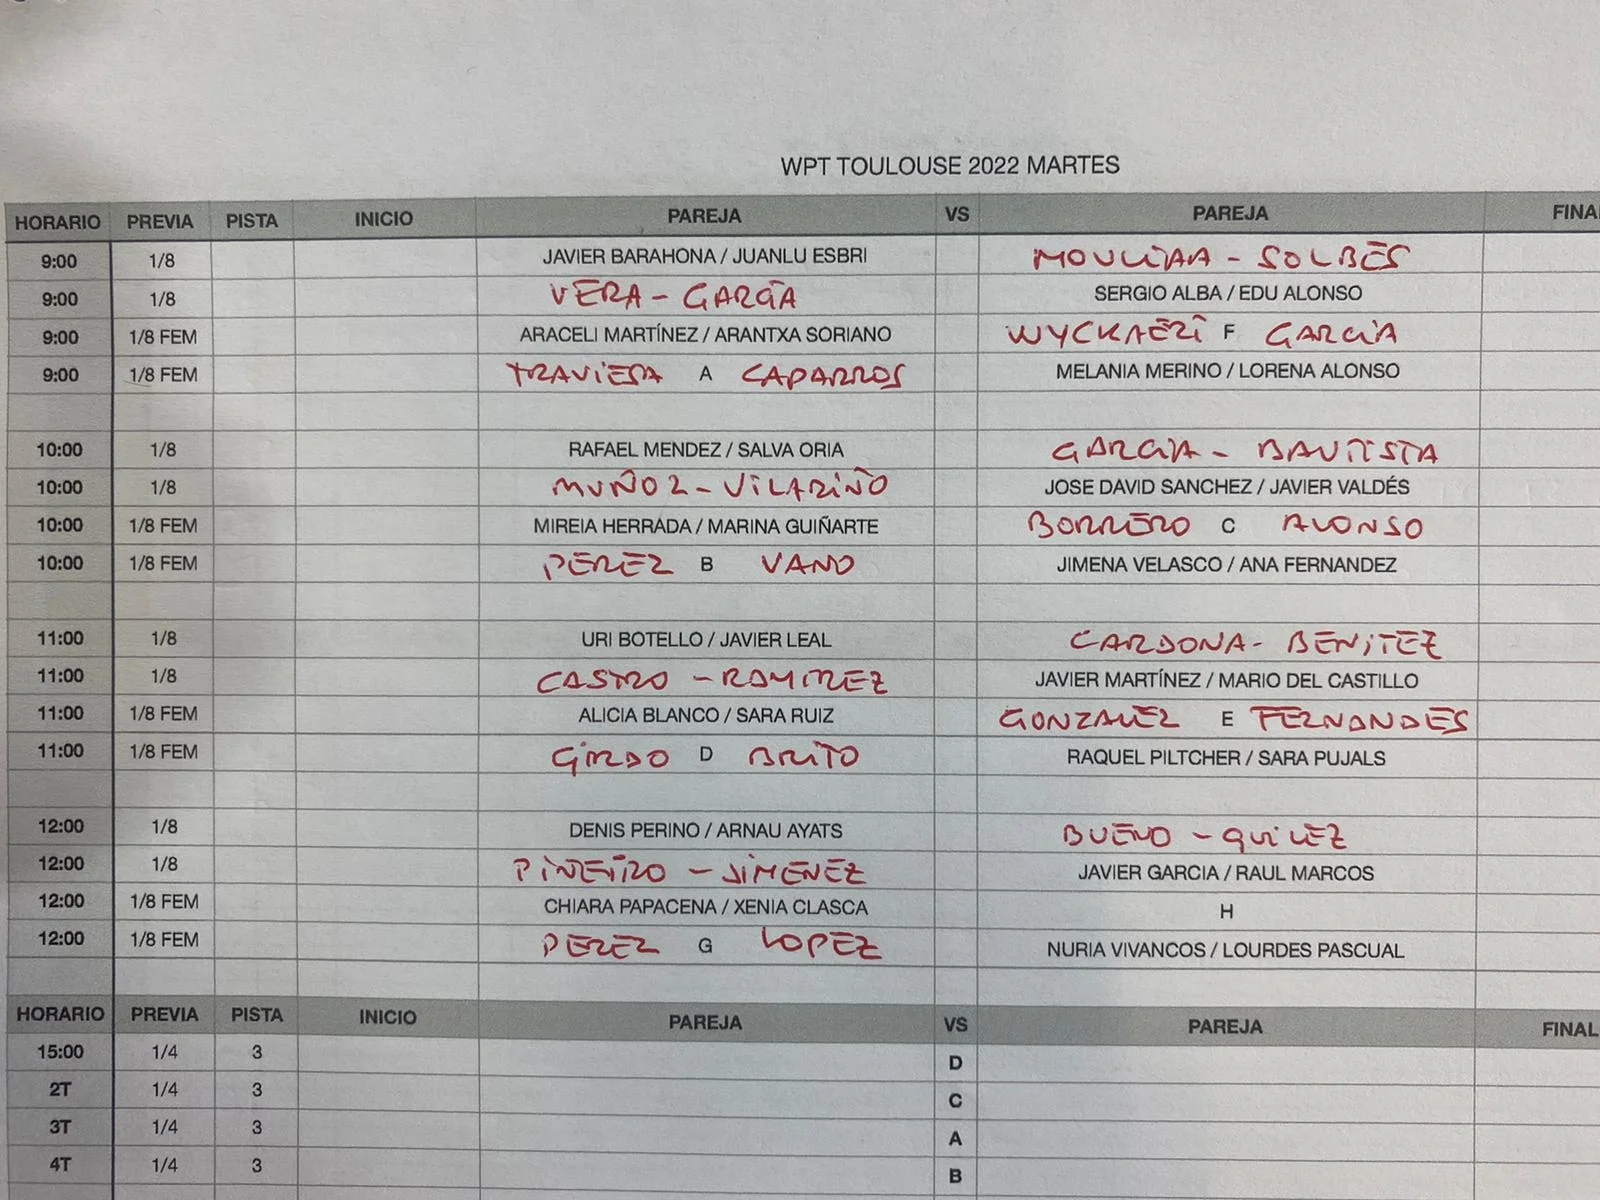 WPT TOULOUSE 2022 MARTES
HORARIO PREVIA PISTA INICIO PAREJA VS PAREJA FINA
9:00 1/8 JAVIER BARAHONA / JUANLU ESBRI MOULIAA - SOLBES
9:00 1/8 VERA - GARCÍA SERGIO ALBA / EDU ALONSO
9:00 1/8 FEM ARACELI MARTÍNEZ / ARANTXA SORIANO WYCKAERT F GARCIA
9:00 1/8 FEM TRAVIESA A CAPARROS MELANIA MERINO / LORENA ALONSO
10:00 1/8 RAFAEL MENDEZ / SALVA ORIA GARCIA - BAUTISTA
10:00 1/8 MUÑOZ - VILARIÑO JOSE DAVID SANCHEZ / JAVIER VALDÉS
10:00 1/8 FEM MIREIA HERRADA / MARINA GUIÑARTE BORRERO C ALONSO
10:00 1/8 FEM PEREZ B VANO JIMENA VELASCO / ANA FERNANDEZ
11:00 1/8 URI BOTELLO / JAVIER LEAL CARDONA - BENITEZ
11:00 1/8 CASTRO - RAMIREZ JAVIER MARTÍNEZ / MARIO DEL CASTILLO
11:00 1/8 FEM ALICIA BLANCO / SARA RUIZ GONZALEZ E FERNANDES
11:00 1/8 FEM GIRDO D BRITO RAQUEL PILTCHER / SARA PUJALS
12:00 1/8 DENIS PERINO / ARNAU AYATS BUENO - QUILEZ
12:00 1/8 PIÑEIRO - JIMENEZ JAVIER GARCIA / RAUL MARCOS
12:00 1/8 FEM CHIARA PAPACENA / XENIA CLASCA H
12:00 1/8 FEM PEREZ G LOPEZ NURIA VIVANCOS / LOURDES PASCUAL
HORARIO PREVIA PISTA INICIO PAREJA VS PAREJA FINAL
15:00 1/4 3 D
2T 1/4 3 C
3T 1/4 3 A
4T 1/4 3 B